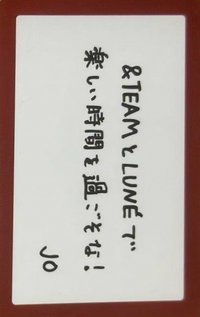 &TEAMとLUNÉで
楽しい時間を過ごそな!
JO